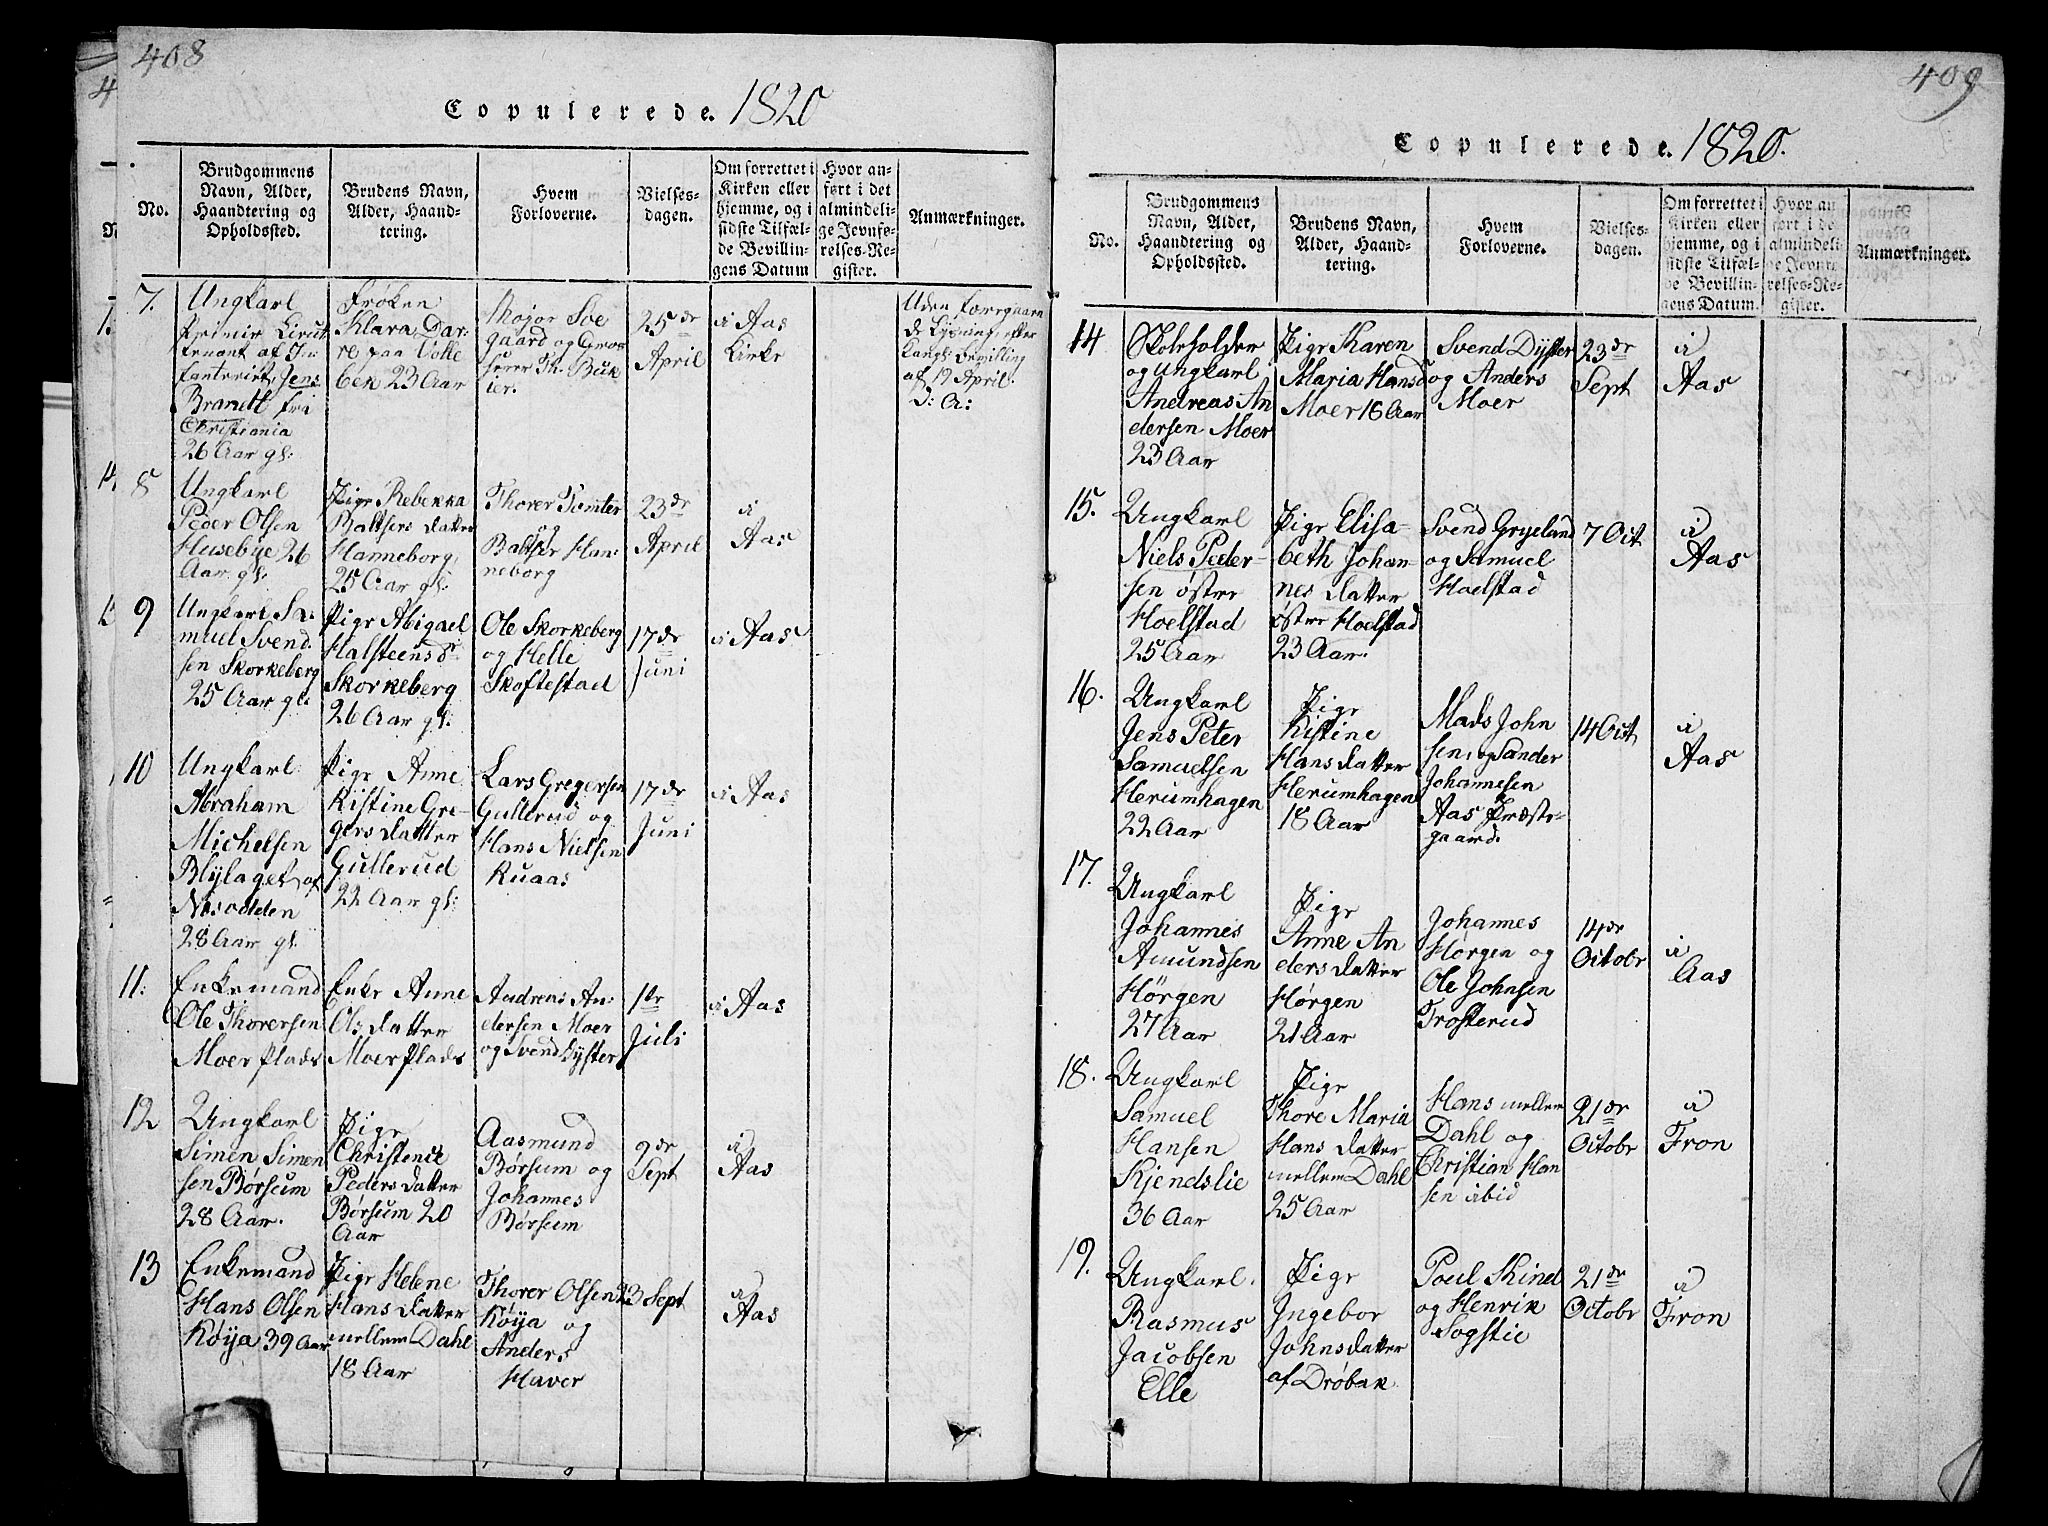 408
Copulerede. 1820
No.
Brudgommens
Navn, Alder,
Haandtering og
Opholdssted.
Brudens Navn,
Alder, Haand-
tering.
Hvem
Forloverne.
Vielses-
dagen.
Om forrettet i
Kirken eller
hjemme, og i
sidste Tilfæl-
de Bevillin-
gens Datum
Hvor an-
ført i det
almindeli-
ge Jevnfø-
relses-Re-
gister.
Anmærkninger.
7.
Ungkarl
premier Lieut
tenant af In
fanteriet, Jens
Brandt fra
Christiania
26 Aar gl:
Frøken
Klara Dar-
re paa Volle
bek 23 Aar
Major Sve
gaard og Gros
serer Th. Buk
ier.
25de
April
i Aas
Kirke
Uden foregaaen
de Lysning, efter
Kongl: bevilling
af 19 April.
D: A:
8
Ungkarl
Peder Olsen
Husebye 26
Aar gl:
Pige Rebekka
Baltsers datter
Hanneborg,
25 Aar gl:
Thorer Tomter
og
Baltser Han-
neborg
23de
April
i
Aas
9
Ungkarl Sa-
muel Svend-
sen Skorkeberg
25 Aar gl:
Pige Abigael
Halsteensdr
Skorkeberg
26 Aar gl:
Ole Skorkeberg
og Helle
Skoftestad
17de
Juni
i Aas
10
Ungkarl
Abraham
Michelsen
Blylaget af
Nesodden
28 Aar gl.
Pige Anne
Kistine Gre-
gers datter
Gullerud
22 Aar gl:
Lars Gregersen
Gullerud og
Hans Nielsen
Ruaas
17de
Juni
i Aas
11:
Enkemand
Ole Thorersen
Moer plads
Enke Anne
Ols datter
Moer plads
Andreas An-
dersen Moer
og Svend Dyster
1ste
Juli
i Aas
12
Ungkarl
Simen Simen
sen Børsum
28 Aar.
Pige
Christence
Peders datter
Børsum 20
Aar
Aasmund
Børsum og
Johannes
Børsum
9de
Sept
i
Aas
13
Enkemand
Hans Olsen
Køya 39 Aar
Pige Helene
Hans datter
mellem Dahl
18 Aar
Thorer Olsen
Køya og
Anders
Haver
23 Sept
i
Aas
409
Copulerede. 1820.
No.
Brudgommens
Navn, Alder,
Haandtering og
Opholdssted.
Brudens Navn,
Alder, Haand-
tering.
Hvem
Forloverne.
Vielses-
dagen.
Om forrettet i
Kirken eller
hjemme, og i
sidste Tilfæl-
de Bevillin-
gens Datum.
Hvor an-
ført i det
almindeli-
ge Jevnfø-
relses-Re-
gister.
Anmærkninger.
14
Skoleholder
og Ungkarl
Andreas An
dersen Moer
23 Aar
Pige Karen
Maria Hansd
Moer 16 Aar
Svend Dyster
og Anders
Moer
23de
Sept
i
Aas
15.
Ungkarl
Niels Peder-
sen østre
Hoelstad
25 Aar
Pige Elisa-
beth Johan-
nes datter
østre Hoelstad
23 Aar.
Svend Gryeland
og Samuel
Hoelstad
7 Oct
i
Aas
16.
Ungkarl
Jens Peter
Samuelsen
Herumhagen
22 Aar
Pige
Kistine
Hans datter
Herumhagen
18 Aar
Mads John
sen, og Sander
Johannesen
Aas Præste-
gaard.
14 Oct
i
Aas
17.
Ungkarl
Johannes
Amundsen
Hørgen
27 Aar
Pige
Anne An
ders datter
Hørgen
21 Aar
Johannes
Hørgen og
Ole Johnsen
Trosterud
14de
Octobr
i
Aas
18.
Ungkarl
Samuel
Hansen
Kjendslie
36 Aar
Pige
Thore Maria
Hans datter
mellem Dahl
25 Aar
Hans mellem
Dahl og
Christian Han
sen ibid
21de
Octobr
i
Fron
19.
Ungkarl.
Rasmus
Jacobsen
Elle
Pige
Ingebor
Johns datter
af Drøbak
Poul Skind
og Henrik
Sogstie
21de
Octobr
i
Fron